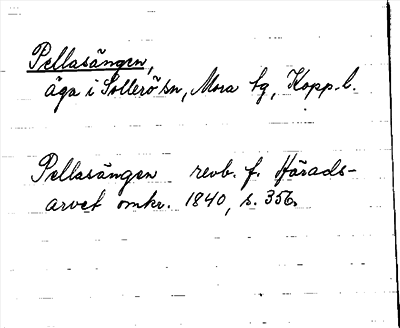 Pellasängen,
äga i Sollerö sn, Mora tg, Kopp. l.
Pellasängen renb. f. Härads-
arvet omkr. 1840, s. 356.